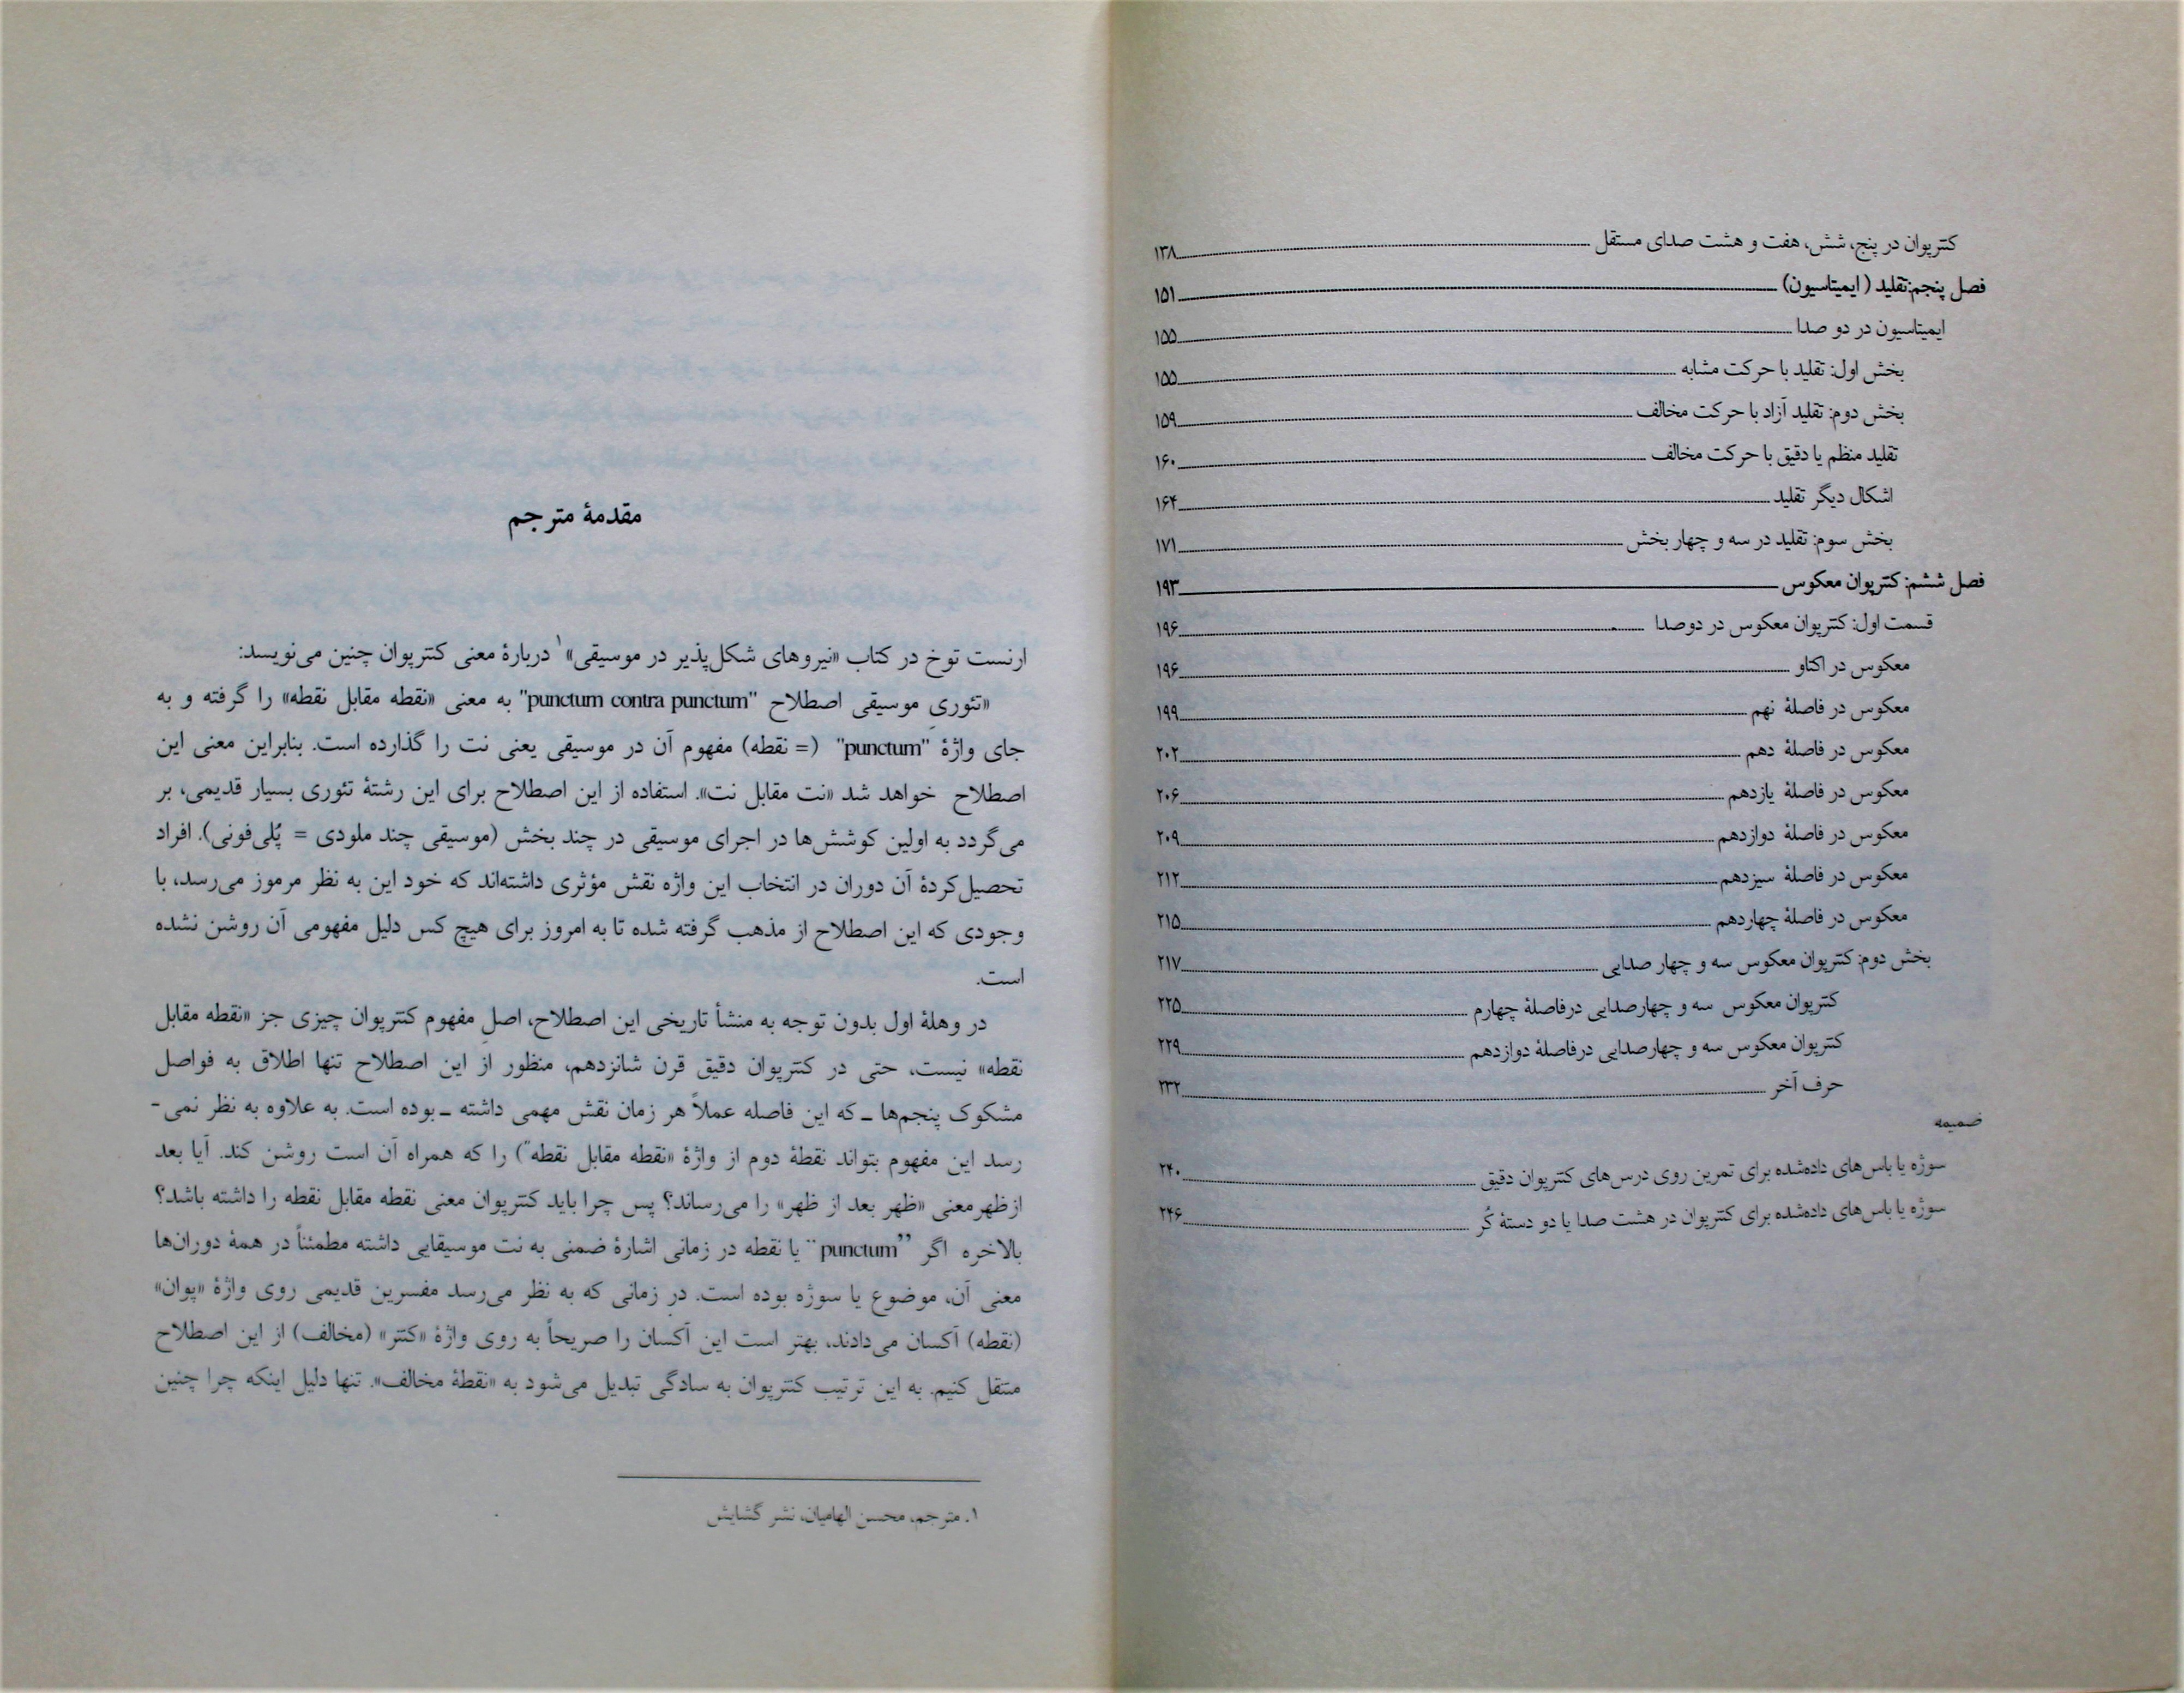 کنترپوان در پنج، شش، هفت و هشت صدای مستقل ۱۳۸
فصل پنجم:تقلید ( ایمیتاسیون) ۱۵۱
ایمیتاسیون در دو صدا ۱۵۵
بخش اول: تقلید با حرکت مشابه ۱۵۵
بخش دوم: تقلید آزاد با حرکت مخالف ۱۵۹
تقلید منظم یا دقیق با حرکت مخالف ۱۶۰
اشکال دیگر تقلید ۱۶۴
بخش سوم: تقلید در سه و چهار بخش ۱۷۱
فصل ششم: کنترپوان معکوس ۱۹۳
قسمت اول: کنترپوان معکوس در دوصدا ۱۹۶
معکوس در اکتاو ۱۹۶
معکوس در فاصلهٔ نهم ۱۹۹
معکوس در فاصلهٔ دهم ۲۰۲
معکوس در فاصلهٔ یازدهم ۲۰۶
معکوس در فاصلهٔ دوازدهم ۲۰۹
معکوس در فاصلهٔ سیزدهم ۲۱۲
معکوس در فاصلهٔ چهاردهم ۲۱۵
بخش دوم: کنترپوان معکوس سه و چهار صدایی ۲۱۷
کنترپوان معکوس سه و چهارصدایی درفاصلهٔ چهارم ۲۲۵
کنترپوان معکوس سه و چهارصدایی درفاصلهٔ دوازدهم ۲۲۹
حرف آخر ۲۳۲
ضمیمه
سوژه یا باس‌های داده‌شده برای تمرین روی درس‌های کنترپوان دقیق ۲۴۰
سوژه یا باس‌های داده‌شده برای کنترپوان در هشت صدا یا دو دستهٔ کُر ۲۴۶
مقدمهٔ مترجم
ارنست توخ در کتاب «نیروهای شکل‌پذیر در موسیقی»۱ دربارهٔ معنی کنترپوان چنین می‌نویسد:
«تئوریِ موسیقی اصطلاح "punctum contra punctum" به معنی «نقطه مقابل نقطه» را گرفته و به
جای واژهٔ "punctum" (= نقطه) مفهوم آن در موسیقی یعنی نت را گذارده است. بنابراین معنی این
اصطلاح خواهد شد «نت مقابل نت». استفاده از این اصطلاح برای این رشتهٔ تئوری بسیار قدیمی، بر
می‌گردد به اولین کوشش‌ها در اجرای موسیقی در چند بخش (موسیقی چند ملودی = پُلی‌فونی). افراد
تحصیل‌کردهٔ آن دوران در انتخاب این واژه نقش مؤثری داشته‌اند که خود این به نظر مرموز می‌رسد، با
وجودی که این اصطلاح از مذهب گرفته شده تا به امروز برای هیچ کس دلیل مفهومی آن روشن نشده
است.
در وهلهٔ اول بدون توجه به منشأ تاریخی این اصطلاح، اصلِ مفهوم کنترپوان چیزی جز «نقطه مقابل
نقطه» نیست، حتی در کنترپوان دقیق قرن شانزدهم، منظور از این اصطلاح تنها اطلاق به فواصل
مشکوک پنجم‌ها ـ که این فاصله عملاً هر زمان نقش مهمی داشته ـ بوده است. به علاوه به نظر نمی-
رسد این مفهوم بتواند نقطهٔ دوم از واژهٔ «نقطه مقابل نقطه») را که همراه آن است روشن کند. آیا بعد
ازظهرمعنی «ظهر بعد از ظهر» را می‌رساند؟ پس چرا باید کنترپوان معنی نقطه مقابل نقطه را داشته باشد؟
بالاخره اگر "punctum" یا نقطه در زمانی اشارهٔ ضمنی به نت موسیقایی داشته مطمئناً در همهٔ دوران‌ها
معنی آن، موضوع یا سوژه بوده است. در زمانی که به نظر می‌رسد مفسرین قدیمی روی واژهٔ «پوان»
(نقطه) آکسان می‌دادند، بهتر است این آکسان را صریحاً به روی واژهٔ «کنتر» (مخالف) از این اصطلاح
منتقل کنیم. به این ترتیب کنترپوان به سادگی تبدیل می‌شود به «نقطهٔ مخالف». تنها دلیل اینکه چرا چنین
۱. مترجم، محسن الهامیان، نشر گشایش